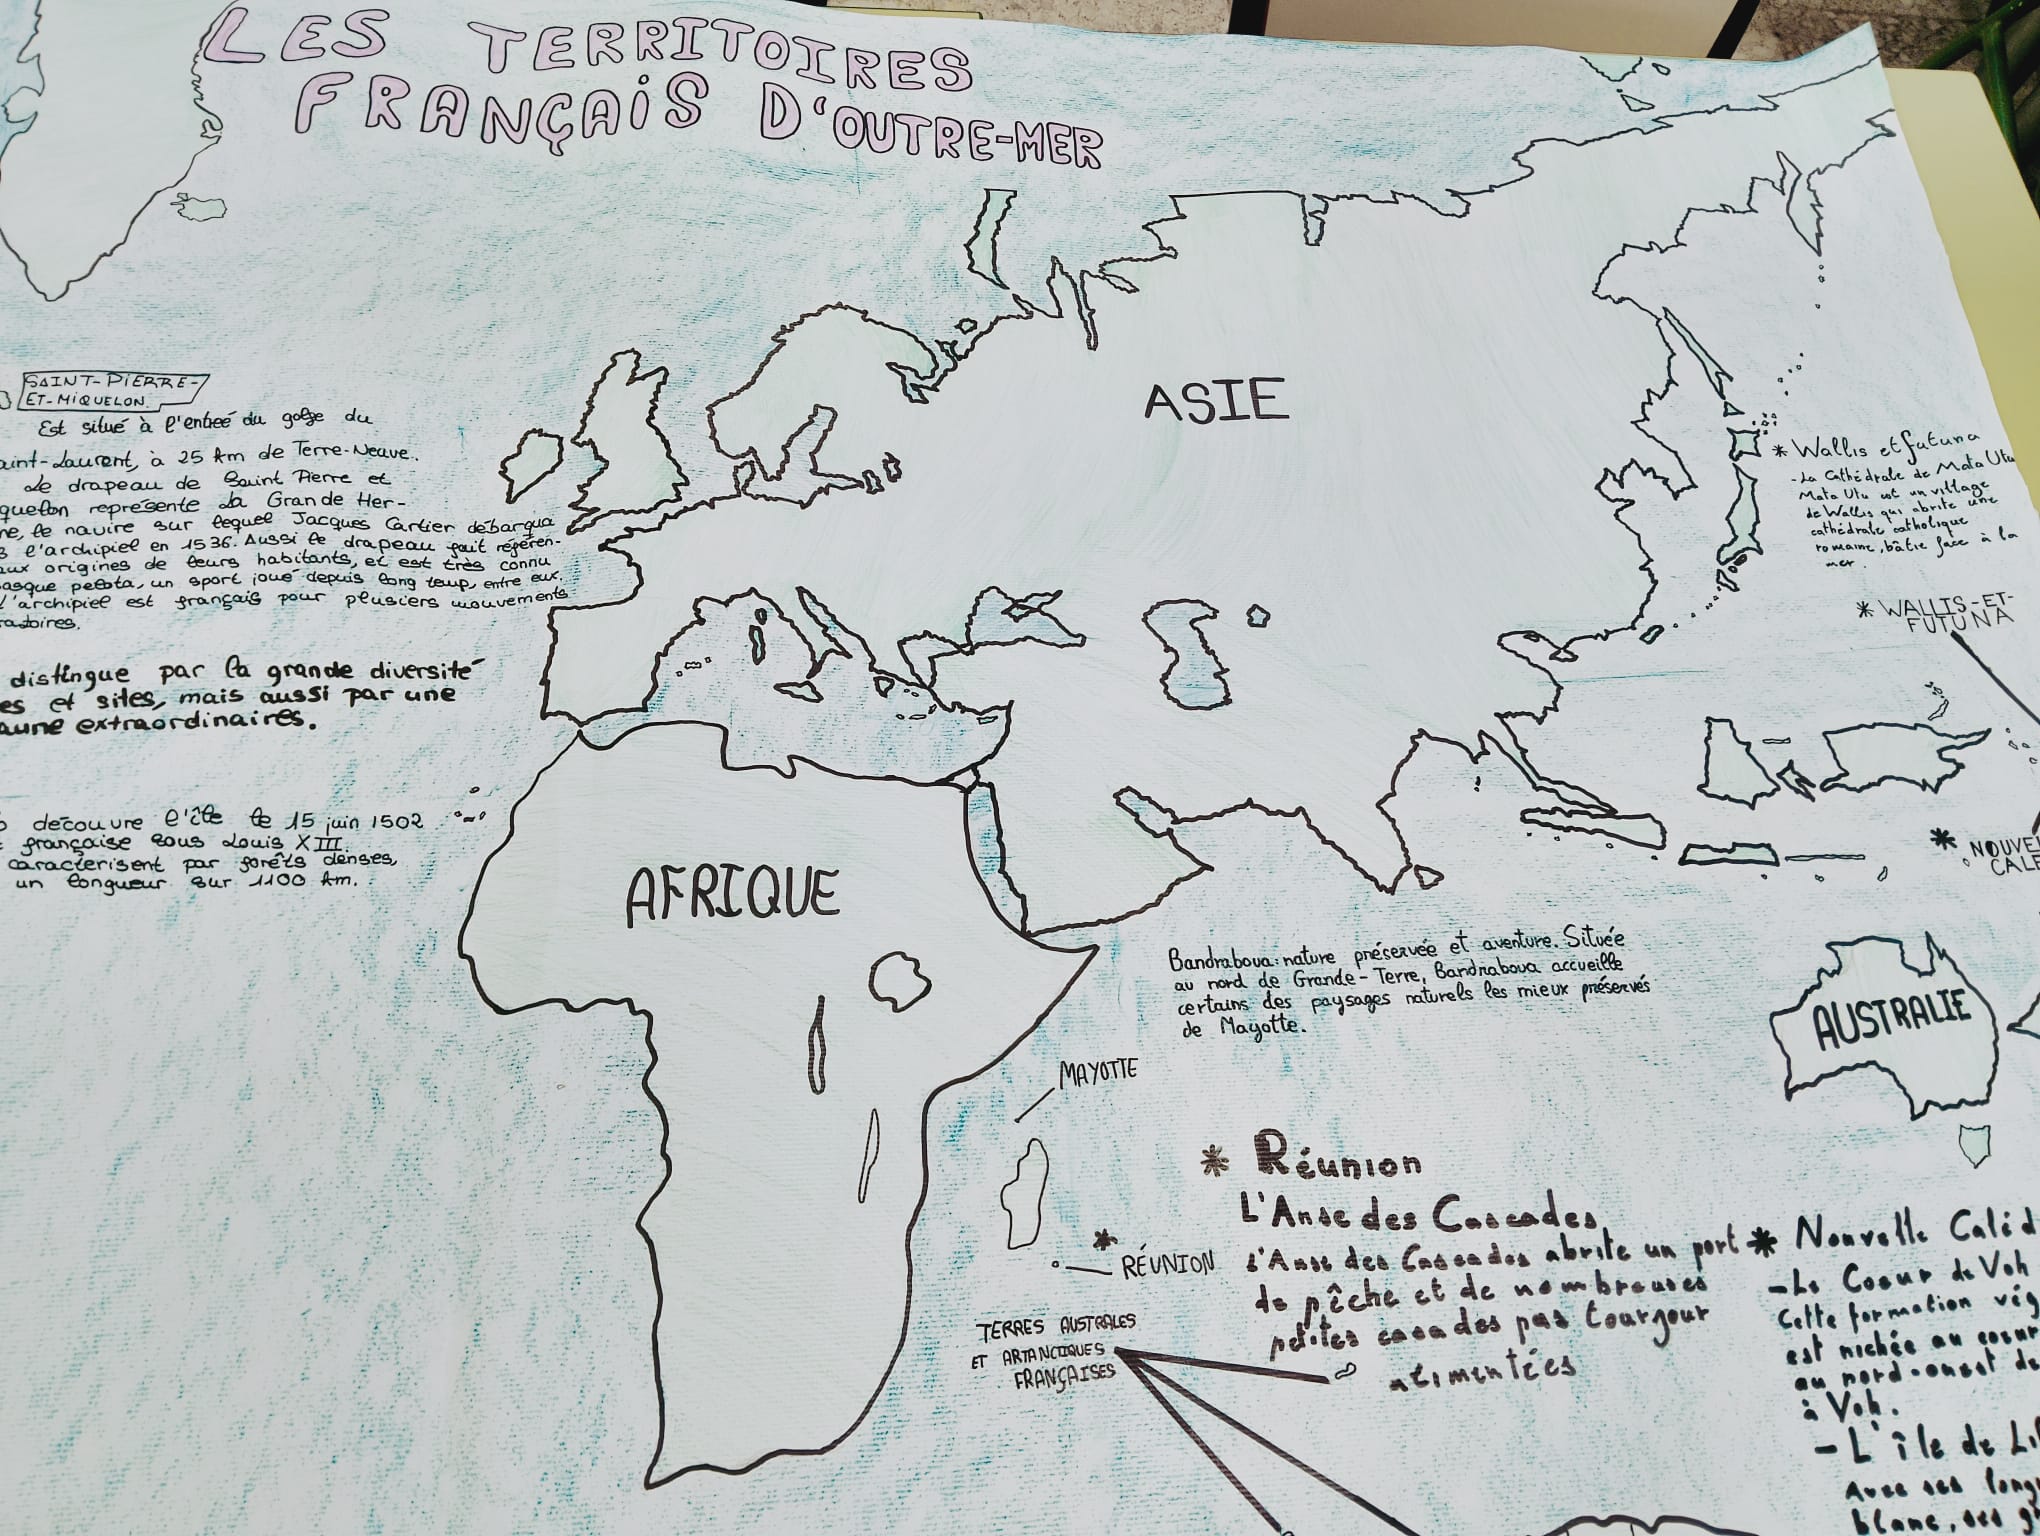 LES TERRITOIRES
FRANÇAIS D'OUTRE-MER
SAINT-PIERRE-
ET-MIQUELON.
Est situé à l'entreé du golfe du
aint-Laurent, à 25 km de Terre-Neuve.
Le drapeau de Saint Pierre et
quelon représente la Grande Her-
ne, le navire sur lequel Jacques Cartier débarqua
l'archipiel en 1536. Aussi le drapeau fait référen-
aux origines de leurs habitants, et est très connu
asque pelota, un sport joué depuis long temp, entre eux.
l'archipiel est français pour plusiers mouvements
ratoires.
distingue par la grande diversité
es et sites, mais aussi par une
aune extraordinaires.
découvre l'île le 15 juin 1502
française sous Louis XIII.
caracterisent par forêts denses,
un longueur sur 1100 km.
ASIE
AFRIQUE
* Wallis et futuna
- La Cathédrale de Mata Utu
Mata Utu est un village
de Wallis qui abrite une
cathédrale catholique
romaine, bâtie face à la
mer.
* WALLIS-ET-
FUTUNA
* NOUVE
CALE
AUSTRALIE
Bandraboua: nature préservée et aventure. Située
au nord de Grande-Terre, Bandraboua accueille
certains des paysages naturels les mieux préservés
de Mayotte.
MAYOTTE
* RÉUNION
TERRES AUSTRALES
ET ARTANCTIQUES
FRANÇAISES
* Réunion
L'Anse des Cascades
L'Anse des Cascades abrite un port
de pêche et de nombreuses
petites casades pas tourjour
alimentées
* Nouvelle Caléd
- Le Coeur de Voh
Cette formation vég
est nichée au coeur
au nord-ouest de
à Voh.
- L'île de Li
Avec ses long
blanc, ses